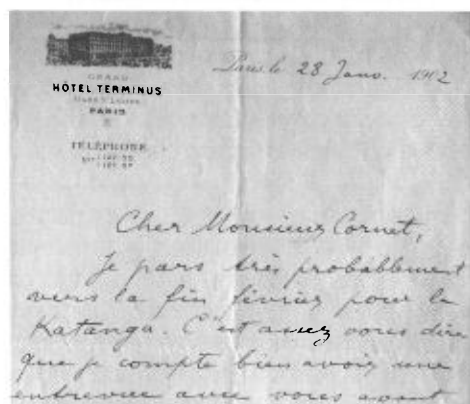 GRAND
HÔTEL TERMINUS
PARIS
TÉLÉPHONE
Paris le 28 Janv. 1902
Cher Monsieur Cornet,
Je pars très probablement
vers la fin février pour le
Katanga. C'est assez vous dire
que je compte bien avoir une
entrevue avec vous avant